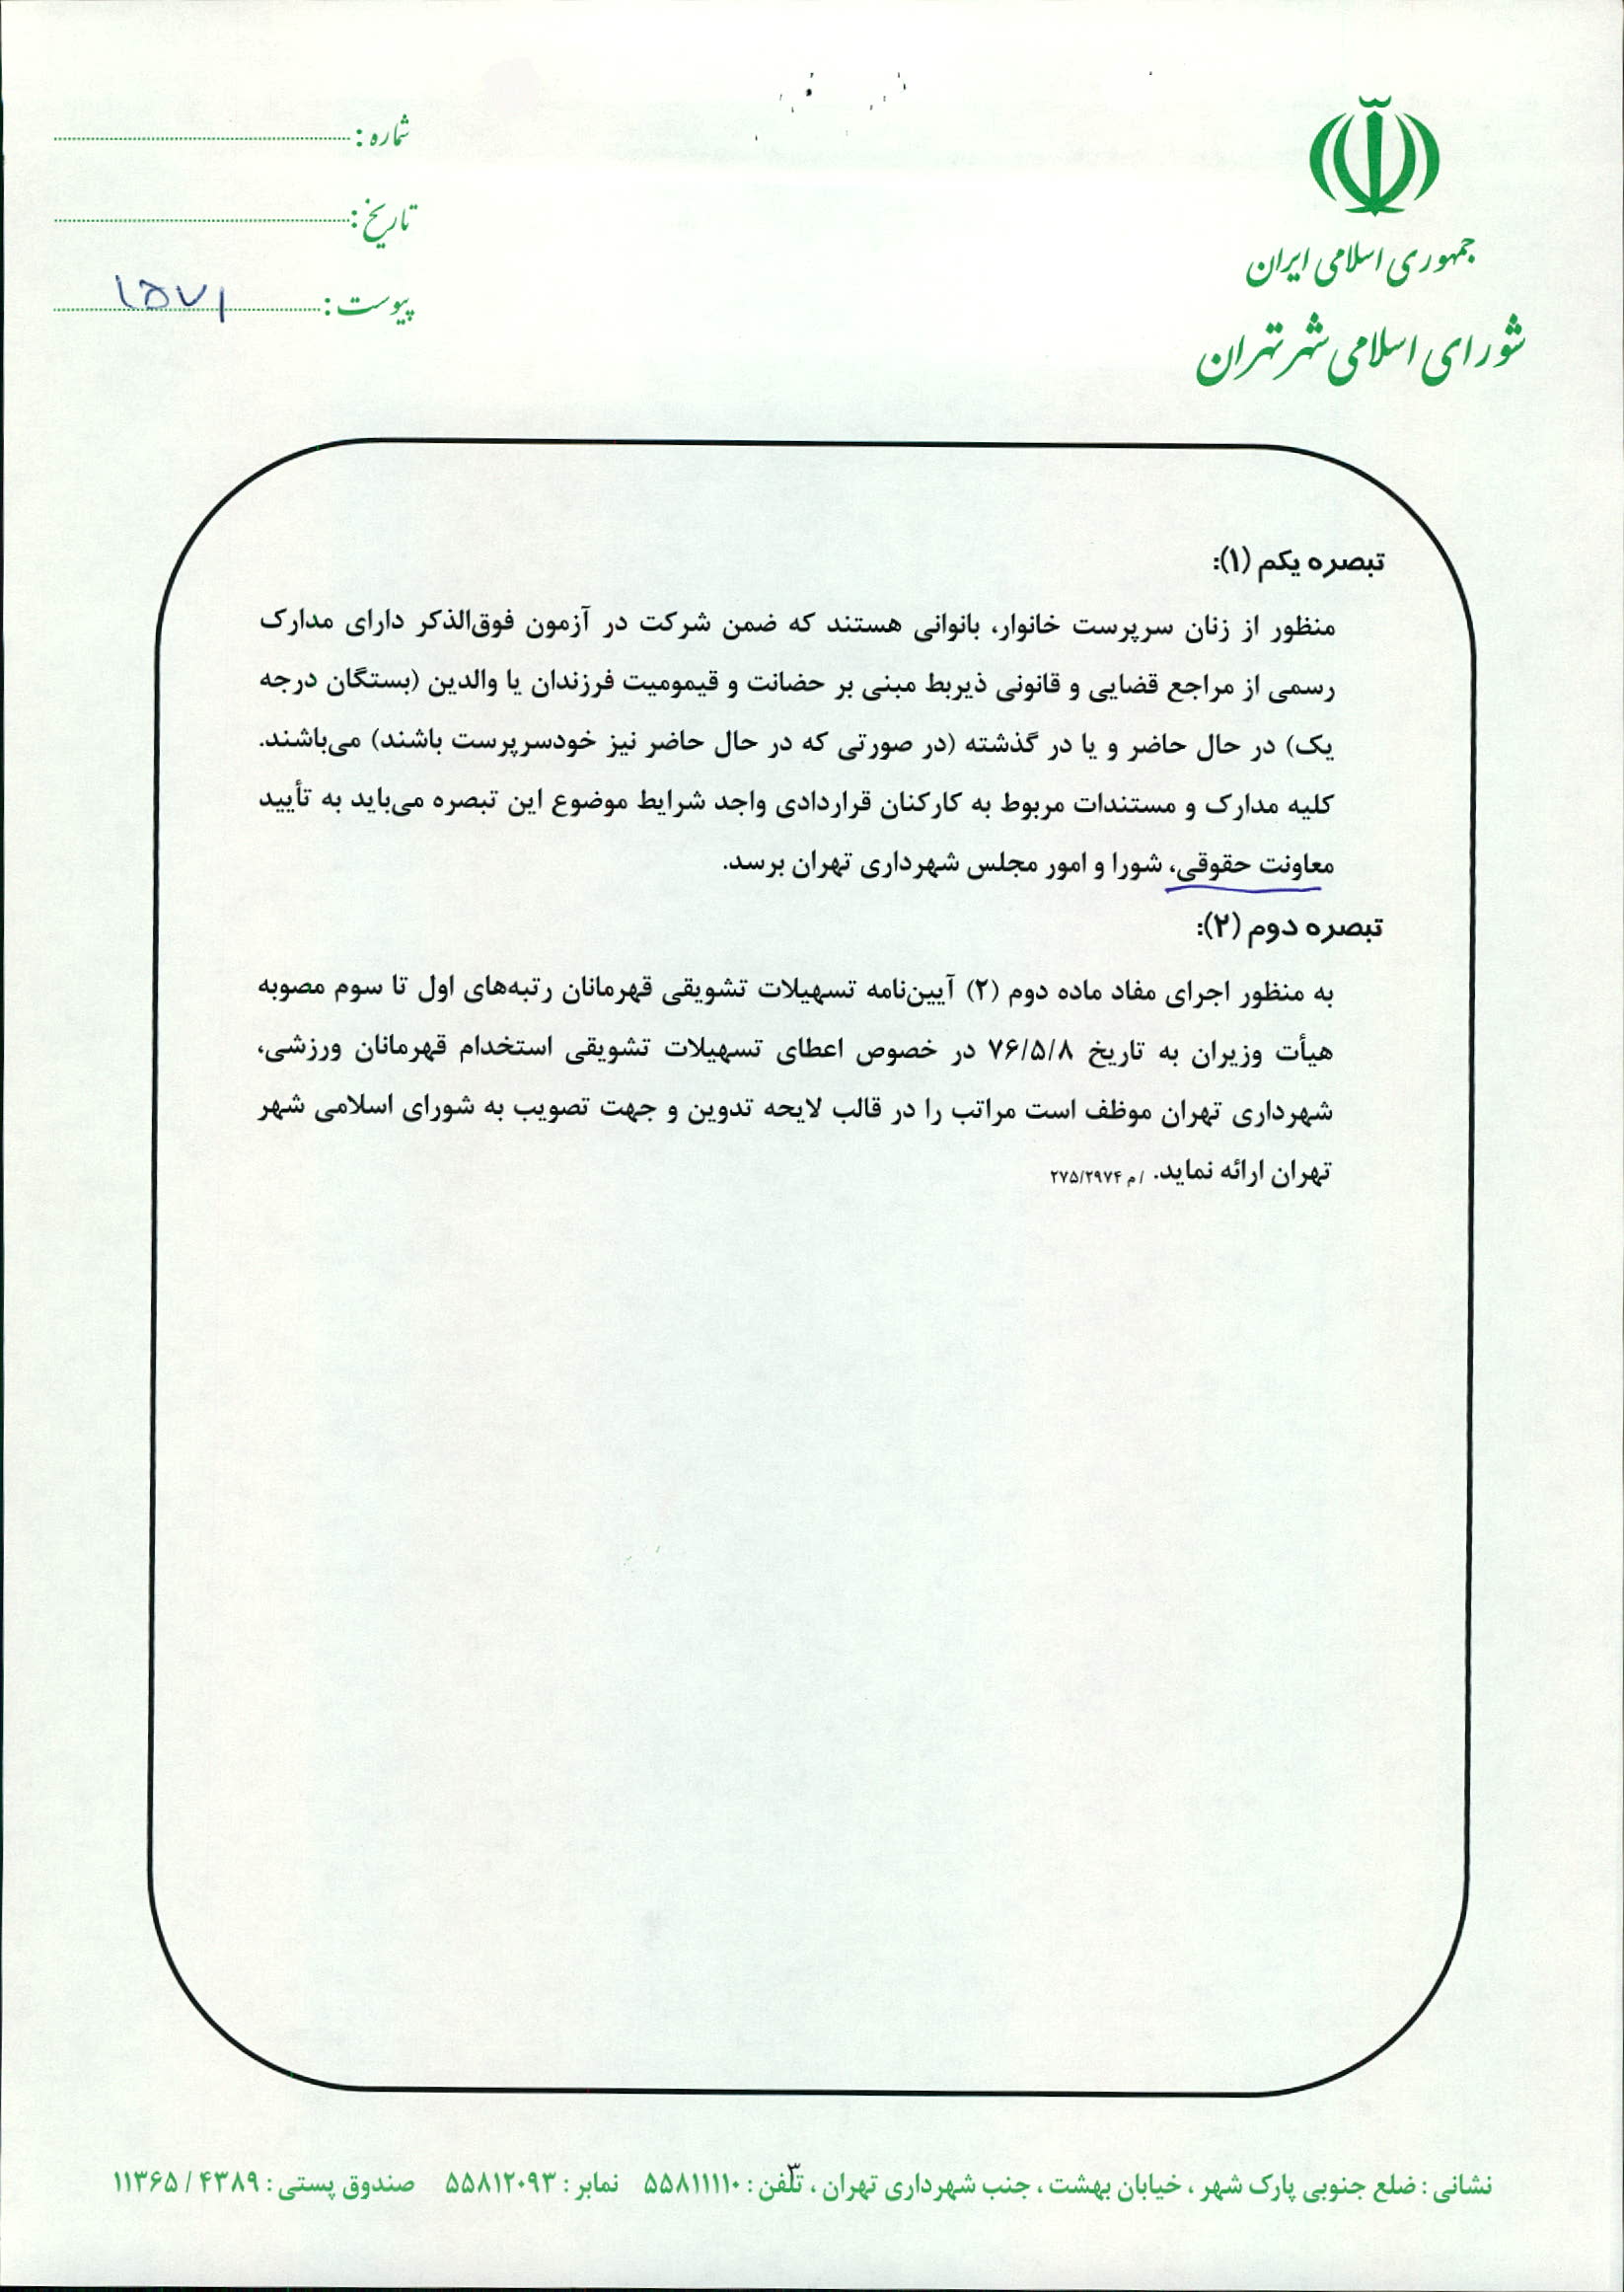 جمهوری اسلامی ایران
شورای اسلامی شهر تهران
شماره :
تاریخ :
پیوست : ۱۵۷۱
تبصره یکم (۱):
منظور از زنان سرپرست خانوار، بانوانی هستند که ضمن شرکت در آزمون فوق‌الذکر دارای مدارک
رسمی از مراجع قضایی و قانونی ذیربط مبنی بر حضانت و قیمومیت فرزندان یا والدین (بستگان درجه
یک) در حال حاضر و یا در گذشته (در صورتی که در حال حاضر نیز خودسرپرست باشند) می‌باشند.
کلیه مدارک و مستندات مربوط به کارکنان قراردادی واجد شرایط موضوع این تبصره می‌باید به تأیید
معاونت حقوقی، شورا و امور مجلس شهرداری تهران برسد.
تبصره دوم (۲):
به منظور اجرای مفاد ماده دوم (۲) آیین‌نامه تسهیلات تشویقی قهرمانان رتبه‌های اول تا سوم مصوبه
هیأت وزیران به تاریخ ۷۶/۵/۸ در خصوص اعطای تسهیلات تشویقی استخدام قهرمانان ورزشی،
شهرداری تهران موظف است مراتب را در قالب لایحه تدوین و جهت تصویب به شورای اسلامی شهر
تهران ارائه نماید. /م ۲۷۵/۲۹۷۴
۳
نشانی : ضلع جنوبی پارک شهر ، خیابان بهشت ، جنب شهرداری تهران ، تلفن : ۵۵۸۱۱۱۱۰ نمابر : ۵۵۸۱۲۰۹۳ صندوق پستی : ۴۳۸۹ / ۱۱۳۶۵